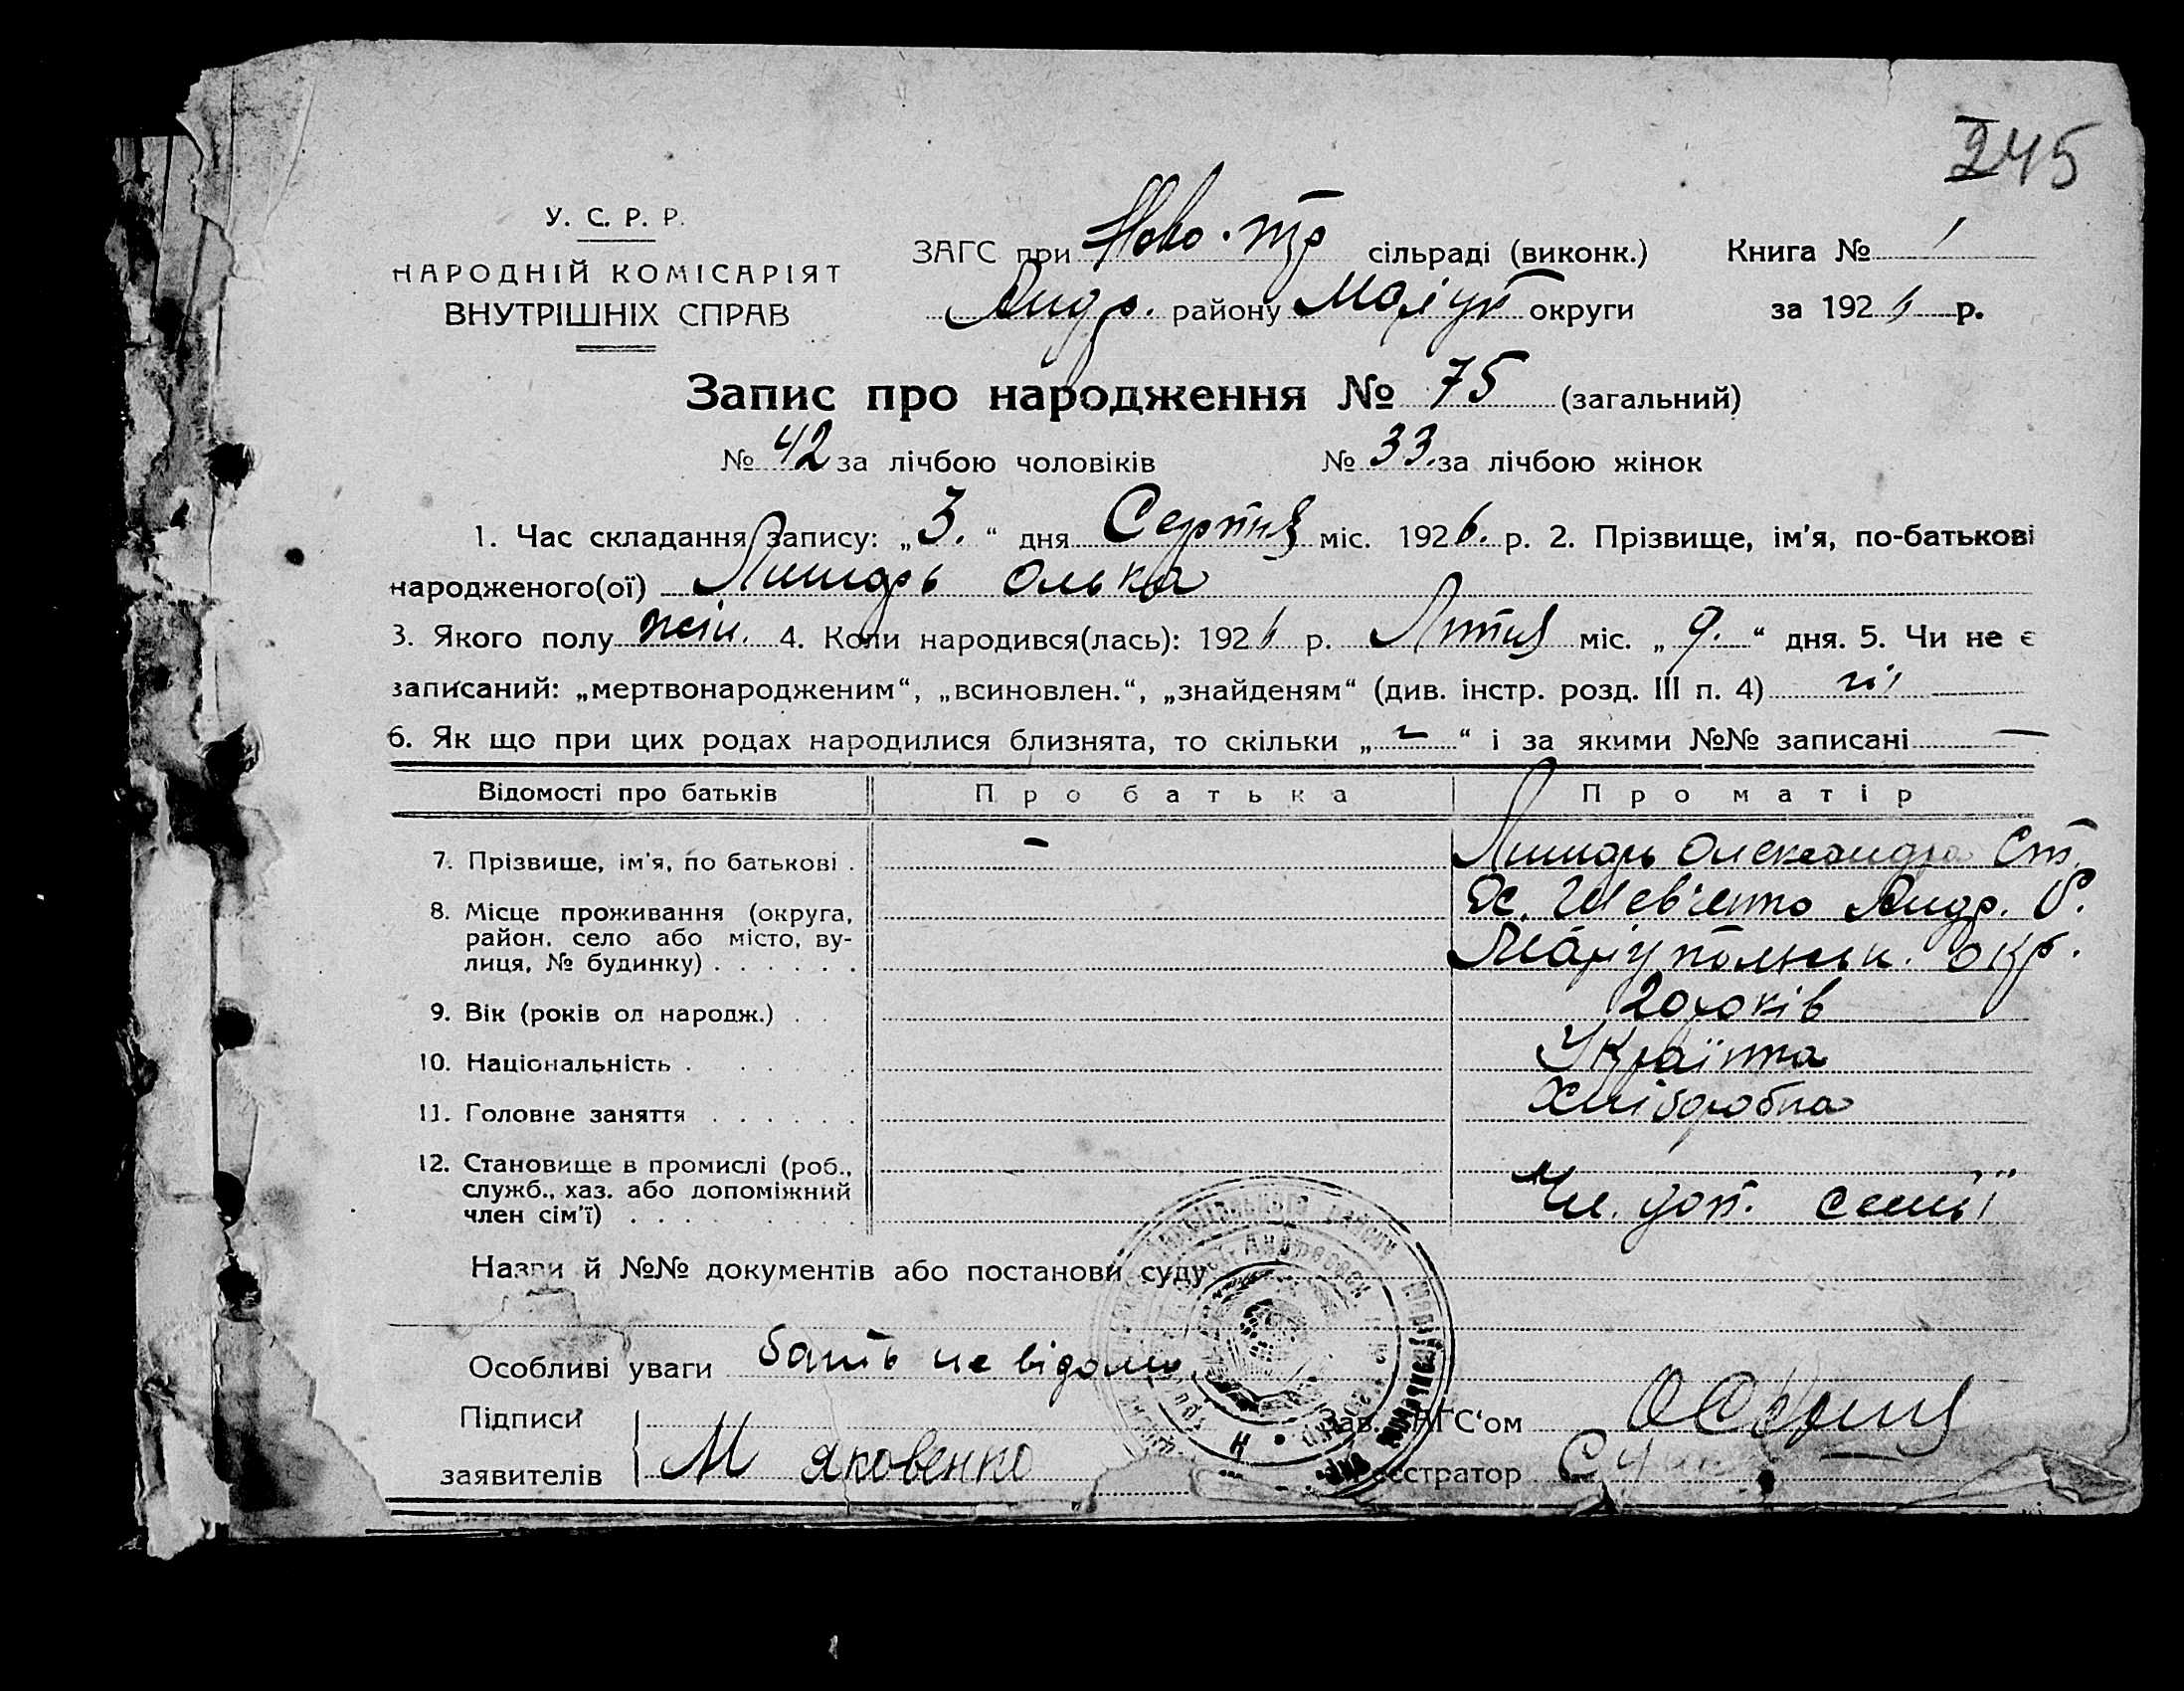 245
У. С. Р. Р.
НАРОДНІЙ КОМІСАРІЯТ
ВНУТРІШНІХ СПРАВ
ЗАГС при Ново-Тр сільраді (виконк.) Книга № 1
Андр. району Маріуп округи за 1926 р.
Запис про народження № 75 (загальний)
№ 42 за лічбою чоловіків № 33. за лічбою жінок
1. Час складання запису: „3.“ дня Серпня міс. 1926. р. 2. Прізвище, ім'я, по-батькові
народженого(ої) Олька
3. Якого полу жін. 4. Коли народився(лась): 1926 р. Лютня міс. „9.“ дня. 5. Чи не є
записаний: „мертвонародженим“, „всиновлен.“, „знайденям“ (див. інстр. розд. III п. 4) ні
6. Як що при цих родах народилися близнята, то скільки „-“ і за якими №№ записані —
Відомості про батьків Про батька Про матір
7. Прізвище, ім'я, по батькові . - Олександра Ст.
8. Місце проживання (округа, район, село або місто, вулиця, № будинку) . . . . . . Х. Шевченко Андр. Р.
Маріупольськ. Окр.
9. Вік (років од народж.) . . 20 років
10. Національність . . . . . Українка
11. Головне заняття . . . . . . Хліборобка
12. Становище в промислі (роб., служб., хаз. або допоміжний член сім'ї) . . . . . . . Чл. доп. семьї
Назви й №№ документів або постанови суду
Особливі уваги бать не відом
Підписи
заявителів М Яковенко
Зав. ЗАГС‘ом
Реєстратор